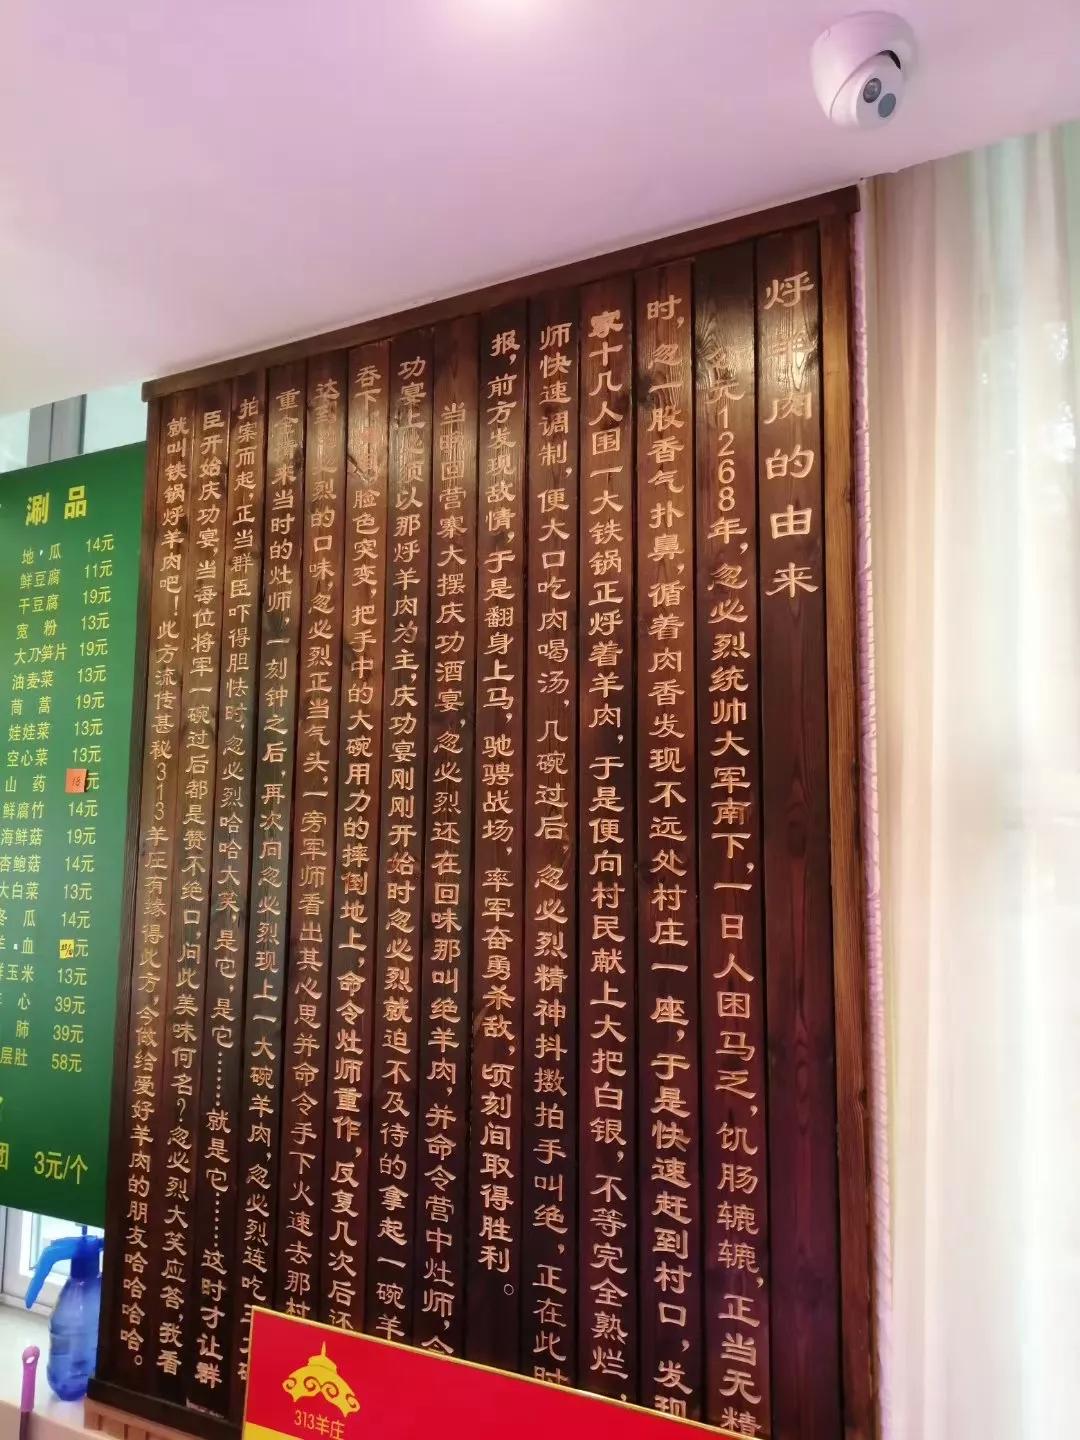 烀羊肉的由来
公元1268年，忽必烈统帅大军南下，一日人困马乏，饥肠辘辘，正当无精
时，忽一股香气扑鼻，循着肉香发现不远处村庄一座，于是快速赶到村口，发现
家十几人围一大铁锅正烀着羊肉，于是便向村民献上大把白银，不等完全熟烂，
师快速调制，便大口吃肉喝汤，几碗过后，忽必烈精神抖擞拍手叫绝，正在此时
报，前方发现敌情，于是翻身上马，驰骋战场，率军奋勇杀敌，顷刻间取得胜利。
当晚回营寨大摆庆功酒宴，忽必烈还在回味那叫绝羊肉，并命令营中灶师，今
功宴上必须以那烀羊肉为主，庆功宴刚刚开始时忽必烈就迫不及待的拿起一碗羊
吞下，脸色突变，把手中的大碗用力的摔倒地上，命令灶师重作，反复几次后还
达到忽必烈的口味，忽必烈正当气头，一旁军师看出其心思并命令手下火速去那村
重金请来当时的灶师，一刻钟之后，再次向忽必烈现上一大碗羊肉，忽必烈连吃三大碗
拍案而起，正当群臣吓得胆怯时，忽必烈哈哈大笑，是它，是它……就是它……这时才让群
臣开始庆功宴，当每位将军一碗过后都是赞不绝口，问此美味何名？忽必烈大笑应答，我看
就叫铁锅烀羊肉吧！此方流传甚秘313羊庄有缘得此方，今做给爱好羊肉的朋友哈哈哈哈。
涮品
地·瓜 14元
鲜豆腐 11元
干豆腐 19元
宽粉 13元
大刀笋片 19元
油麦菜 13元
茼蒿 19元
娃娃菜 13元
空心菜 13元
山药 元
鲜腐竹 14元
海鲜菇 19元
杏鲍菇 14元
大白菜 13元
冬瓜 14元
羊·血 元
鲜玉米 13元
心 39元
肺 39元
层肚 58元
团 3元/个
313羊庄